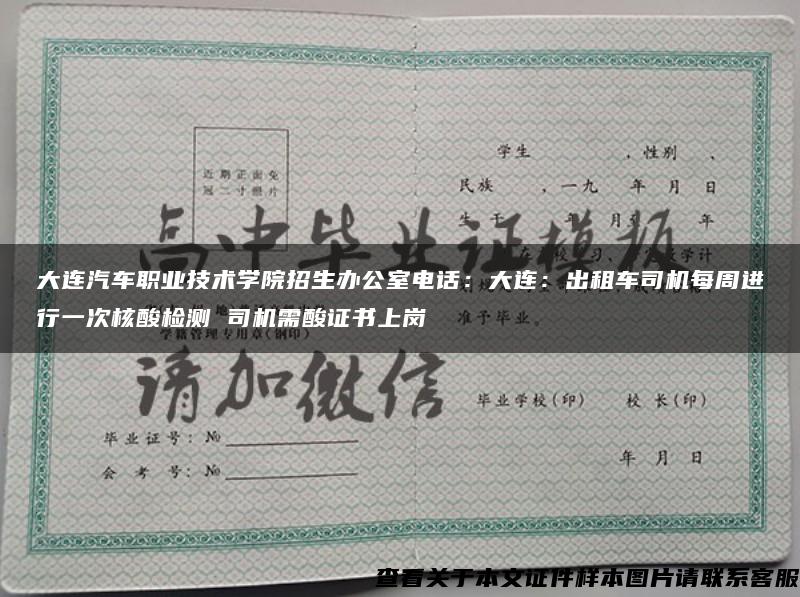 学生 ，性别 、
近期正面免
冠二寸照片
民族 ，一九 年 月 日
高中毕业证模板
大连汽车职业技术学院招生办公室电话：大连：出租车司机每周进
行一次核酸检测 司机需酸证书上岗
准予毕业。
学籍管理专用章(钢印)
请加微信
毕业学校(印) 校 长(印)
毕业证号：№
会 考 号：№
年 月 日
查看关于本文证件样本图片请联系客服